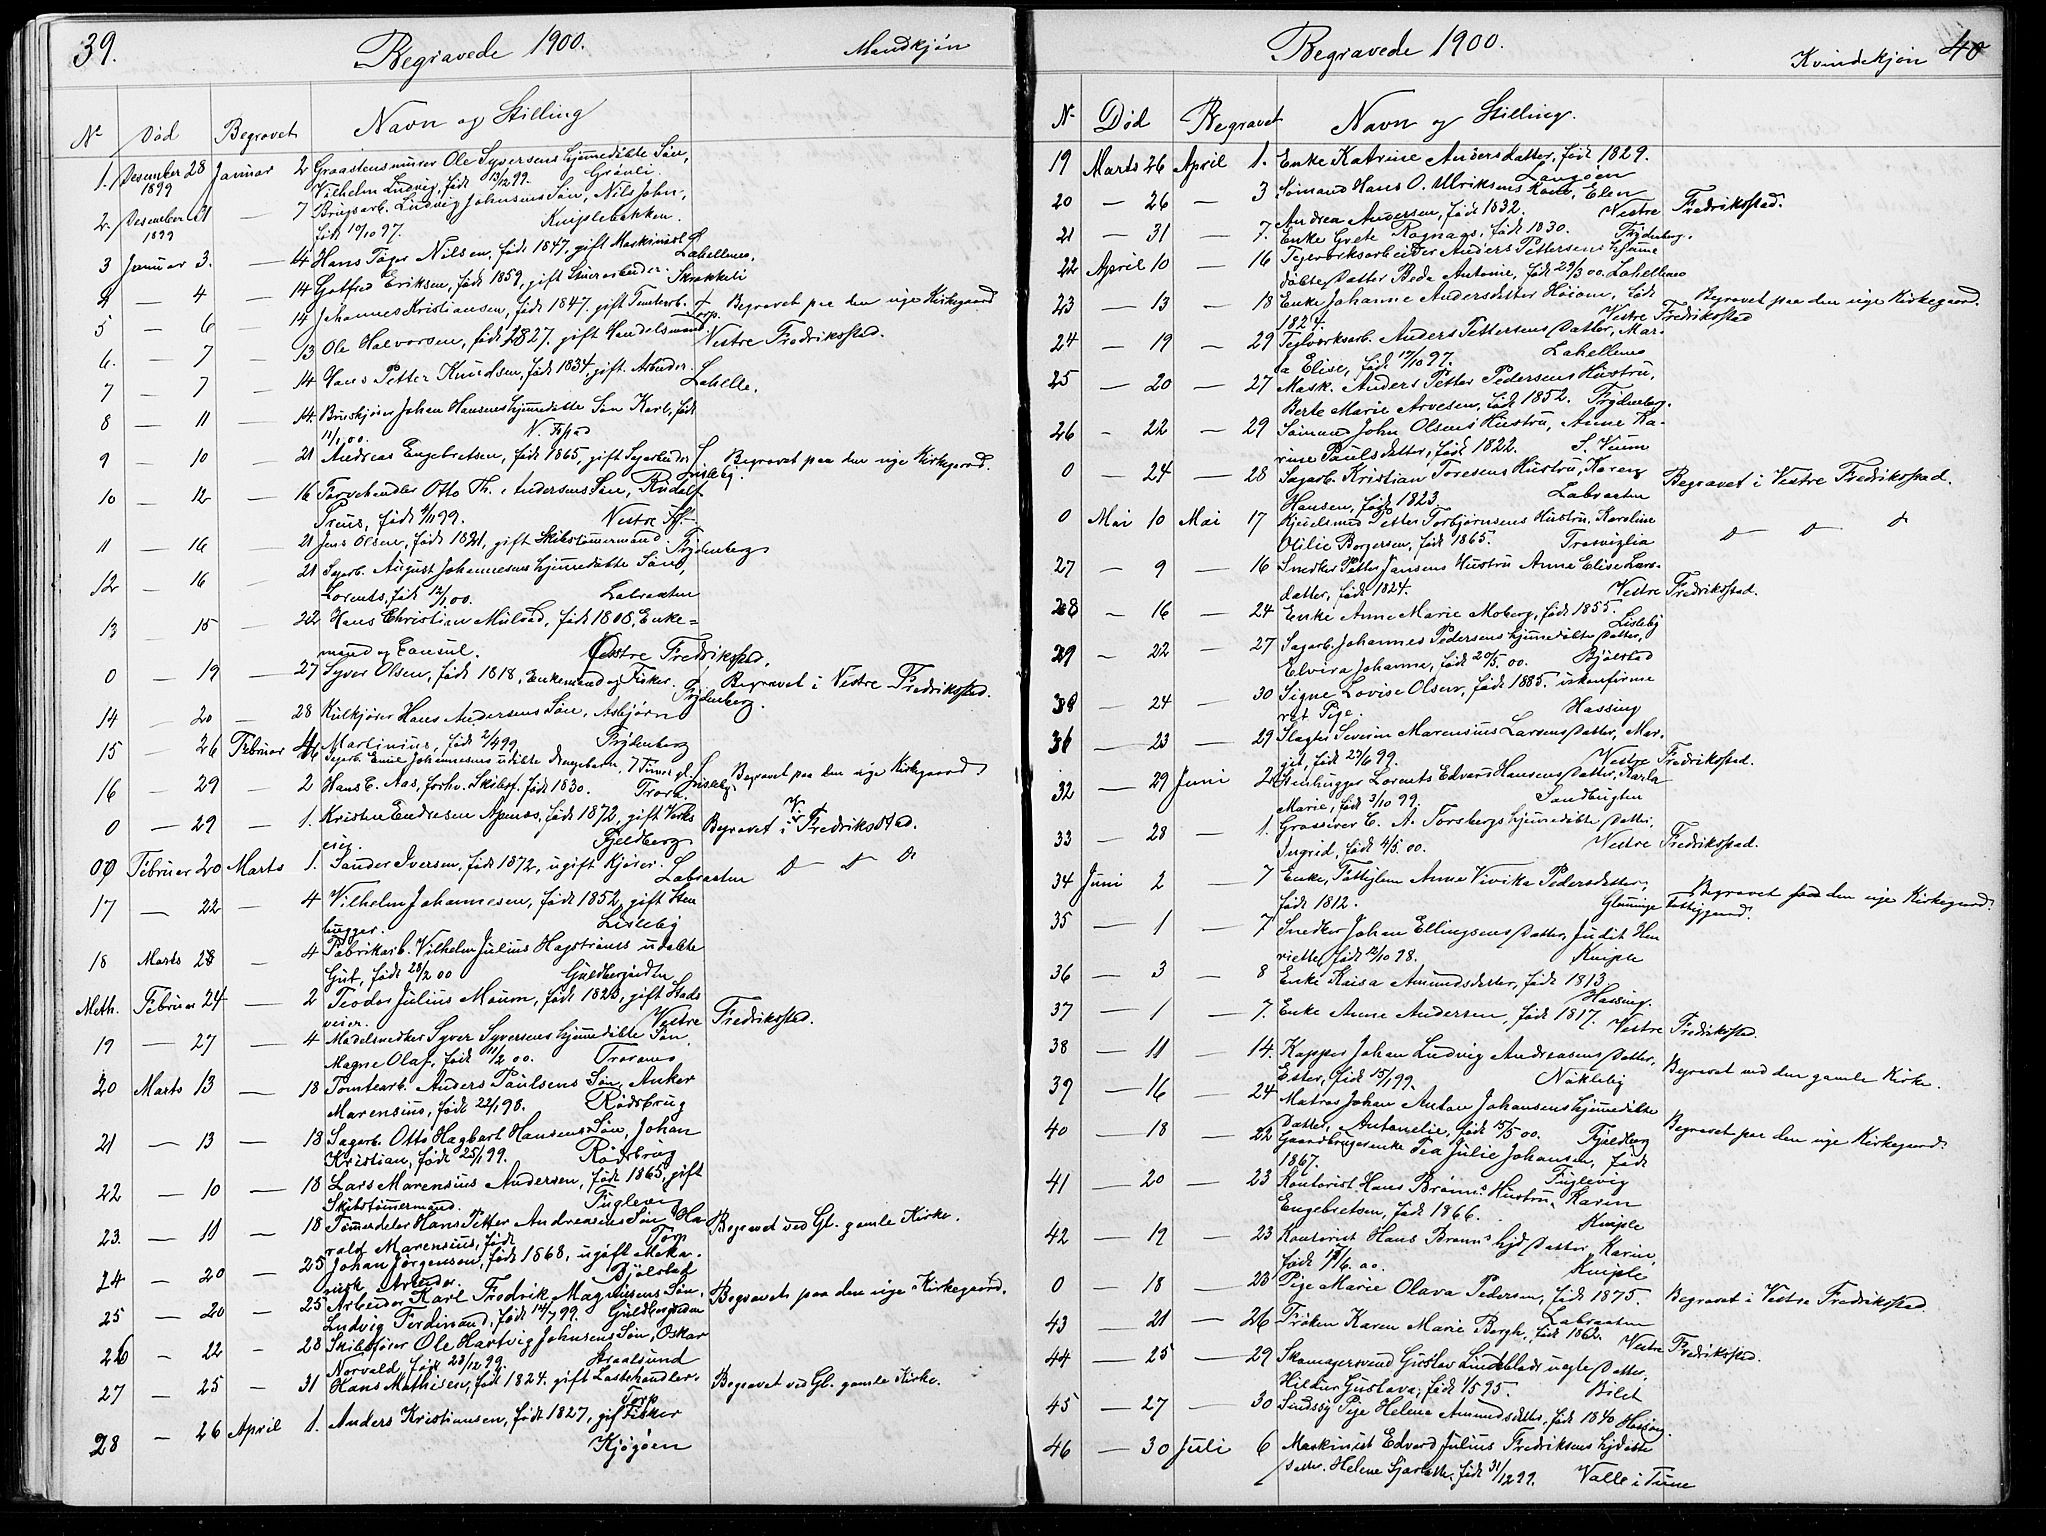 39.
Begravede 1900.
Mandkjøn
No Død Begravet Navn og Stilling
1. Desember 28 Januar 2 Graastensmurer Ole Syversens hjemmedøbte Søn,
1899 Vilhelm Ludvig, født 13/12 99. Grønli.
2. Desember 31 — 7 Brugsarb. Ludvig Johnsens Søn, Nils John,
1899 født 10/10 97. Kniplebakken.
3 Januar 3. — 14 Hans Peter Nilsen, født 1847, gift Maskinist Lahellemo.
4 — 4 — 14 Gotfred Eriksen, født 1859, gift Stuerarbeider. Skrakkeli
5 — 6 — 14 Johannes Kristiansen, født 1847. gift Tomtearb. Torp. Begravet paa den nye Kirkegaard
6. — 7 — 13 Ole Halvorsen, født 1827. gift Handelsmand. Vestre Fredriksstad.
7 — 7 — 14 Hans Petter Knudsen, født 1834, gift. Arbeider. Lahelle.
8 — 11 — 14. Bruskjører Johan Hansens hjemmedøbte Søn Karl, født
11/1 00. V. Fstad
9 — 10 — 21 Andreas Engebretsen, født 1865, gift Sagarbeider Lisleby. Begravet paa den nye Kirkegaard.
10 — 12 — 16 Farvehandler Otto Th. Andersens Søn, Rudolf
Preus, født 4/11 99. Vestre Fr.
11 — 16 — 21 Jens Olsen, født 1821, gift Skibstømermand. Frydenberg
12 — 16 — 21 Sagarb. August Johannesens hjemmedøbte Søn,
Lorents, født 12/1 00. Labraaten
13 — 15 — 22 Hans Christian Mülvad, født 1808, Enke=
mand og Consul. Vestre Fredriksstad.
0 — 19 — 27 Syver Olsen, født 1818, Enkemand og Fisker. Frydenberg. Begravet i Vestre Fredriksstad.
14 — 20 — 28 Kulkjører Hans Andersens Søn, Asbjørn
Martinius, født 2/4 99 Frydenberg
15 — 26 Februar 16 Sagarb. Emil Johannesens udøbte Drengebarn, 7 Timer gl. Lisleby Begravet paa den nye Kirkegaard
16 — 29 — 2 Hans C. Aas, forhv. Skibsf. født 1830. Trara.
0 — 29 — 1. Kristen Endresen Apenæs, født 1872, gift Verks
eier. Fjeldberg Begravet i V. Fredriksstad.
00 Februar 20 Marts 1. Sander Iversen, født 1872, ugift Kjører. Labraaten do do do
17 — 22 — 4 Vilhelm Johannesen, født 1852, gift Sten
hugger. Lisleby
18 Marts 28 — 4 Fabrikarb. Vilhelm Julius Hagstrøms udøbte
Gut, født 28/2 00 Guldbergsiden
Meth. Februar 24 — 2 Teodor Julius Moum, født 1823, gift Stads
veier. Vestre Fredriksstad.
19 — 27 — 4 Mødelsnedker Syver Syversens hjemmedøbte Søn,
Magne Olaf, født 11/2 00. Traramo
20 Marts 13 — 18 Tomtearb. Anders Paulsens Søn, Anker
Marensius, født 22/1 98. Rødsbrug
21 — 13 — 18 Sagarb. Otto Hagbart Hansens Søn, Johan
Kristian, født 25/1 99. Rødsbrug
22 — 10 — 18 Lars Marensius Andersen, født 1865, gift
Skibstømermand. Fuglevig
23. — 11 — 18 Tømerdeler Hans Petter Andreasens Søn Ha
rald Marensius, født Torp Begravet ved Gl. gamle Kirke.
24 — 20 — 25 Johan Jørgensen, født 1868, ugift Meka.
nisk Arbeider. Bjølstad
25 — 20 — 25 Arbeider Karl Fredrik Magnusens Søn,
Ludvig Ferdinand, født 14/7 99. Guldbergsiden Begravet paa den nye Kirkegaard.
26 — 22 — 28 Skibsfører Ole Hartvig Johnsens Søn, Oskar
Norvald, født 28/12 99. Straalsund
27 — 25 — 31 Hans Mathisen, født 1824. gift Lastehandler. Torp Begravet ved Gl. gamle Kirke.
28 — 26 April 1. Anders Kristiansen, født 1827, gift Fisker
Kjøgøen
Begravede 1900.
Kvindekjøn 40
No Død Begravet Navn og Stilling.
19 Marts 26 April 1. Enke Katrine Andersdatter, født 1829.
Langøen
20 — 26 — 3 Sømand Hans O. Ulriksens Kone, Elen
Andrea Andersen, født 1832. Vestre Fredriksstad.
21 — 31 — 7. Enke Grete Ragnags, født 1830. Frydenberg.
22 April 10 — 16 Teglverksarbeider Anders Pettersens hjemme
døbte Datter Beda Antonie, født 29/3 00. Lahellemo
23 — 13 — 18 Enke Johanne Andersdatter Høiom, født
1824. Vestre Fredriksstad Begravet paa den nye Kirkegaard.
24 — 19 — 29 Teglverksarb. Anders Pettersens Datter, Mar-
ja Elise, født 17/10 97. Lahellemo
25 — 20 — 27 Mask. Anders Petter Pedersens Hustru,
Berte Marie Arvesen, født 1852. Frydenberg.
26 — 22 — 29 Sømand John Olsens Hustru, Anne Ka-
rine Paulsdatter, født 1822. S. Veum
0 — 24 — 28 Sagarb. Kristian Toresens Hustru, Karen
Hansen, født 1823. Labraaten Begravet i Vestre Fredriksstad.
0 Mai 10 Mai 17 Kjedelsmed Petter Torbjørnsens Hustru, Karoline
Otilie Borgersen, født 1865. Trosvigliа do do do
27 — 9 — 16 Snedker Petter Jansens Hustru Anne Elise Lars-
datter, født 1824. Vestre Fredriksstad.
28 — 16 — 24 Enke Anne Marie Moberg, født 1855.
Lisleby
29 — 22 — 27 Sagarb. Johannes Pedersens hjemmedøbte Datter,
Elvira Johanna, født 20/5 00. Bjølstad
30 — 24 — 30 Signe Lovise Olsen, født 1885. ukonfirme
ret Pige. Hassing
31 — 23 — 29 Slagter Severin Marensius Larsens Datter, Mar-
git, født 27/6 99. Vestre Fredriksstad.
32 — 29 Juni 2 Stenhugger Lorents Edvard Hansens Datter, Karla
Marie, født 3/10 99. Sandbugten
33 — 28 — 1. Grosserer C. A. Torsbergs hjemmedøbte Datter,
Ingrid, født 4/5 00. Vestre Fredriksstad.
34 Juni 2 — 7 Enke, Fattiglem Anne Vivika Pedersdatter,
født 1812. Glemminge Fattiggaard. Begravet paa den nye Kirkegaard
35 — 1 — 7 Snedker Johan Ellingsens Datter, Judit Hen
riette, født 12/10 98. Kniple
36 — 3 — 8 Enke Kaisa Amundsdatter, født 1813.
Hassing.
37 — 1 — 7. Enke Anne Andersen, født 1817. Vestre Fredriksstad.
38 — 11 — 14. Kapper Johan Ludvig Andreasens Datter,
Ester, født 15/1 99. Nøkleby Begravet ved den gamle Kirke.
39 — 16 — 24 Matros Johan Anton Johansens hjemmedøbte
Datter, Antonelie, født 15/5 00. Fjeldberg
40 — 18 — 22 Gaardbrugerenke Tea Julie Johansen, født
1867. Fuglevig Begravet paa den nye Kirkegaard.
41 — 20 — 23 Kontorist Hans Brønns Hustru, Karin
Engebretsen, født 1866. Kniple
42 — 19 — 23 Kontorist Hans Brønns hjd. Datter Karin,
født 17/6 00. Kniple
0 — 18 — 23 Pige Marie Olava Pedersen, født 1875.
Labraaten Begravet i Vestre Fredriksstad.
43 — 21 — 26 Frøken Karen Marie Borgh, født 1862.
Vestre Fredriksstad.
44 — 25 — 29 Skomagersvend Gustav Lindblads uegte Datter,
Hildur Gustava, født 1/5 95. Bilet
45 — 27 — 30 Sindssyg Pige Helene Amundsdatter, født 1840 Hassing.
46 — 30 Juli 6 Maskinist Edvard Julius Fredriksens hjdøbte
Datter. Helene , født 31/12 99. Valle i Tune